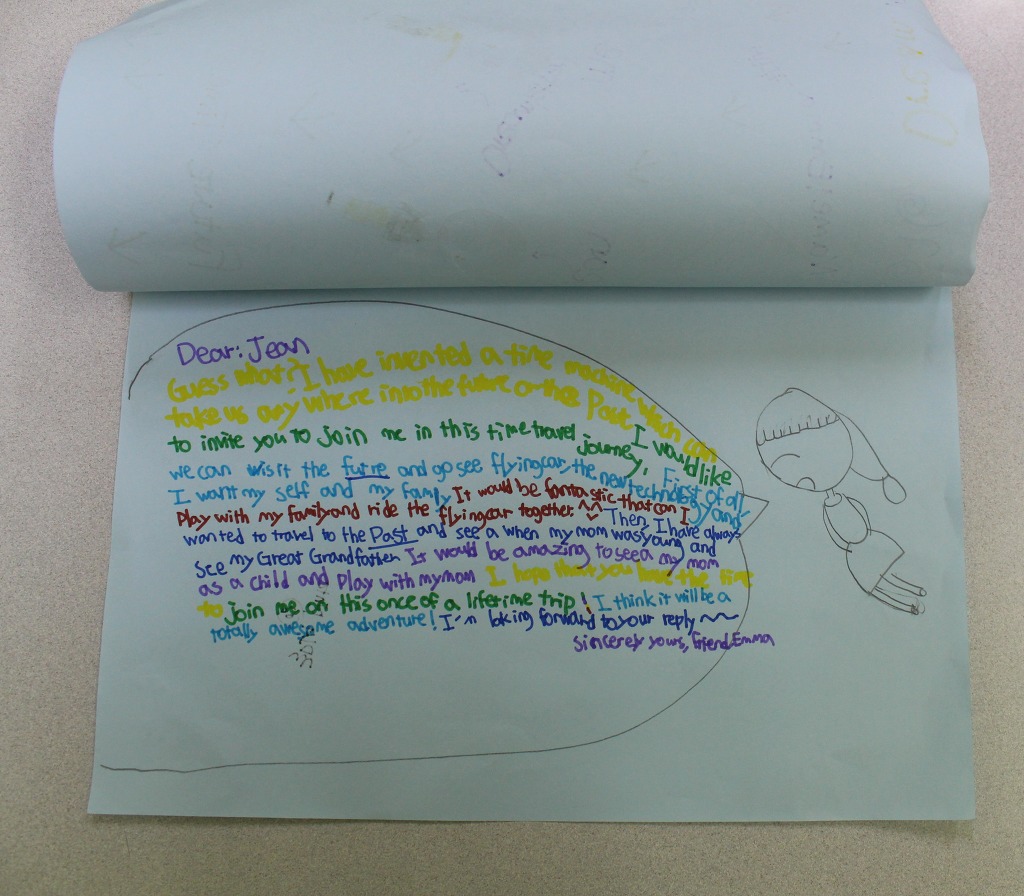 Dear: Jean
Guess what? I have invented a time machine which can
take us any where into the future or the Past I would like
to invite you to join me in this time travel journey. First of all
we can wisit the futre and go see flying car, the new technology and
I want my self and my family It would be fantastic that can I
Play with my family and ride the flying car together. ^^ Then, I have always
wanted to travel to the Past and see a when my mom was young and
see my Great Grandfather. It would be amazing to see a my mom
as a child and Play with my mom I hope that you have the time
to join me on this once of a lifetime trip! I think it will be a
totally awesome adventure! I'm loking forward to your reply ~~
Sincerely yours, friend, Emma